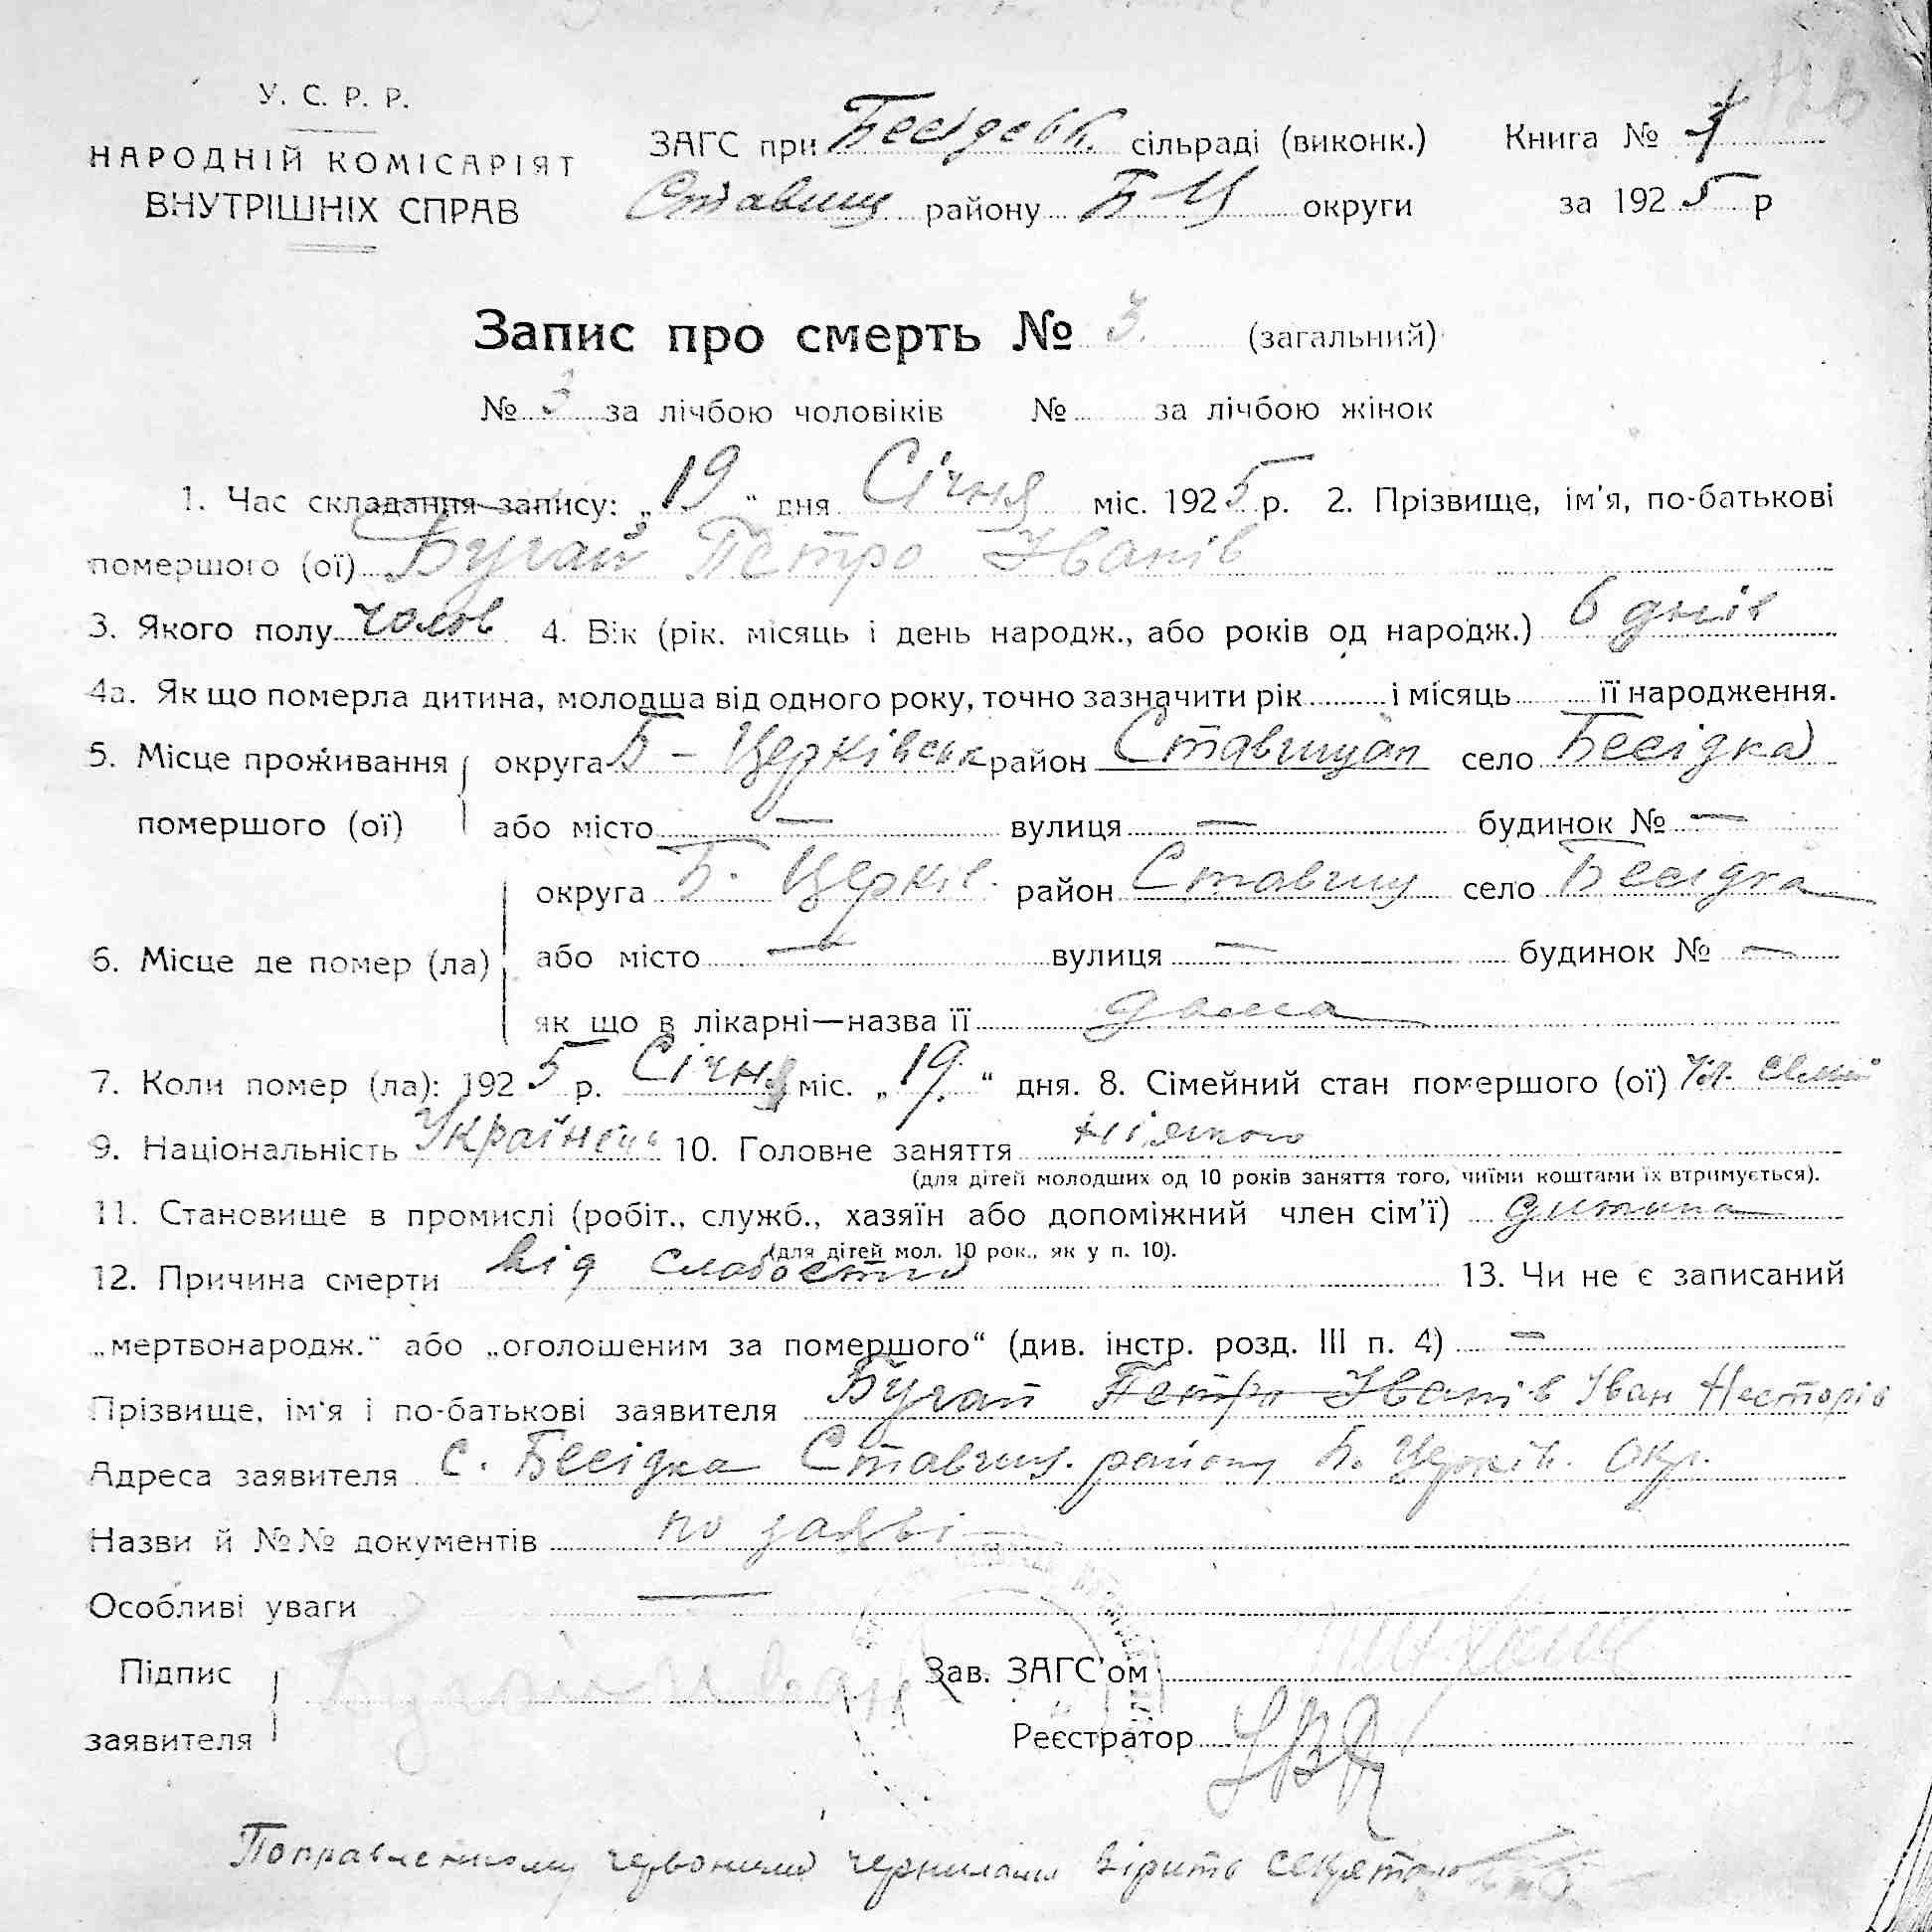 У. С. Р. Р.
НАРОДНІЙ КОМІСАРІЯТ
ВНУТРІШНІХ СПРАВ
ЗАГС при Бесідовк. сільраді (виконк.) Книга №
Ставищ району Б-Ц округи за 1925 р
Запис про смерть № 3. (загальний)
№ 3 за лічбою чоловіків № за лічбою жінок
1. Час складання запису: „19“ дня Січня міс. 1925 р. 2. Прізвище, ім'я, по-батькові
помершого (ої) Бугай Петро Іванів
3. Якого полу чолов 4. Вік (рік. місяць і день народж., або років од народж.) 6 днів
4а. Як що померла дитина, молодша від одного року, точно зазначити рік і місяць її народження.
5. Місце проживання помершого (ої) округа Б-Церківськ район Ставищан село Бесідка
або місто — вулиця — будинок № —
6. Місце де помер (ла) округа Б. Церків. район Ставищ село Бесідка
або місто — вулиця — будинок № —
як що в лікарні—назва її дома
7. Коли помер (ла): 1925 р. Січня міс. „19“ дня. 8. Сімейний стан помершого (ої)
9. Національність Українець 10. Головне заняття ніякого
(для дітей молодших од 10 років заняття того, чиїми коштами їх втримується).
11. Становище в промислі (робіт., служб., хазяїн або допоміжний член сім'ї) дитина
(для дітей мол. 10 рок., як у п. 10).
12. Причина смерти від слабости 13. Чи не є записаний
„мертвонародж.“ або „оголошеним за помершого“ (див. інстр. розд. III п. 4) —
Прізвище, ім'я і по-батькові заявителя Бугай Петро Іванів Іван Несторів
Адреса заявителя с. Бесідка Ставищ. району Б. Церків. окр.
Назви й №№ документів по заяві
Особливі уваги —
Підпис заявителя Бугай Иван Зав. ЗАГС'ом
Реєстратор
Поправленному червоними чернилами вірить секретарь